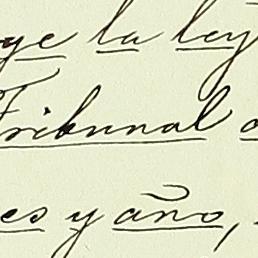 ge la ley
Tribunal
es y año,